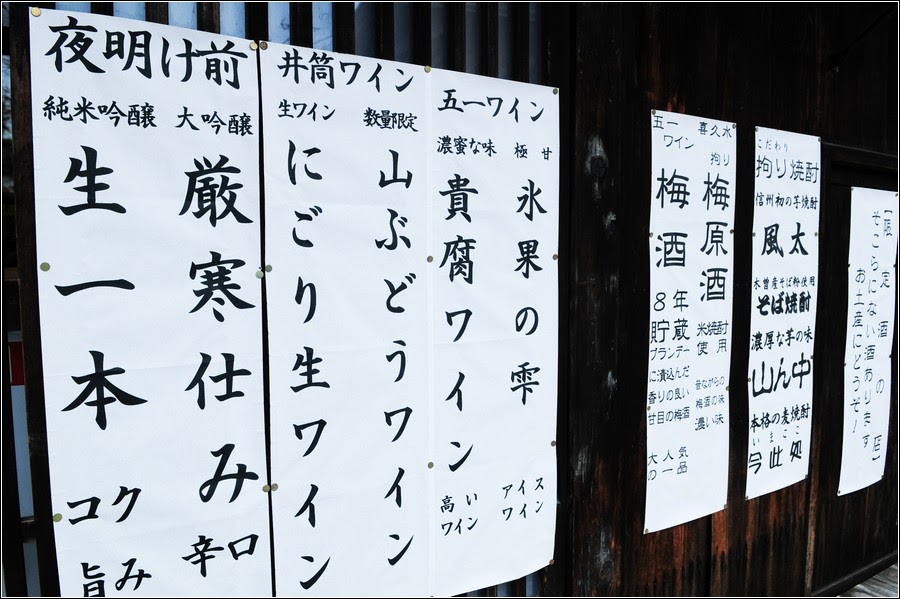 夜明け前
大吟醸
厳寒仕み
辛口
純米吟醸
生一本
コク
旨み
井筒ワイン
数量限定
山ぶどうワイン
生ワイン
にごり生ワイン
五一ワイン
極甘
氷果の雫
アイス
ワイン
濃蜜な味
貴腐ワイン
高い
ワイン
喜久水
拘り
梅原酒
米焼酎
使用
昔ながらの
梅酒の味
濃い味
五一
ワイン
梅酒
8年
貯蔵
ブランデー
に漬込んだ
香りの良い
甘目の梅酒
大人気
の一品
こだわり
拘り焼酎
信州初の芋焼酎
風太
木曽産そば粉使用
そば焼酎
濃厚な芋の味
山ん中
本格の麦焼酎
いまここ
今此処
【限定酒の店】
そこらにない酒あります
お土産にどうぞ!